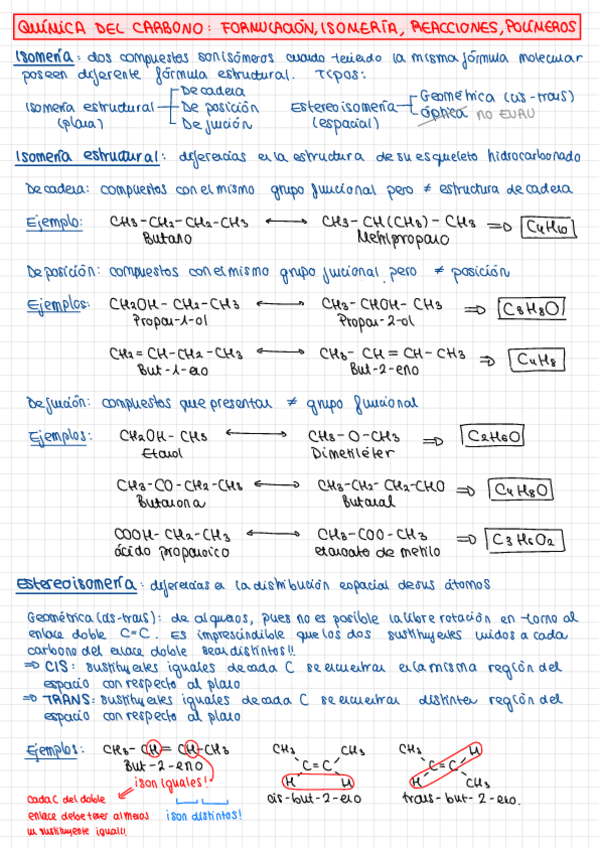 QUÍMICA DEL CARBONO: FORMULACIÓN, ISOMERÍA, REACCIONES, POLÍMEROS
Isomería: dos compuestos son isómeros cuando teniendo la misma fórmula molecular
poseen diferente fórmula estructural. Tipos:
Isomería estructural (plana)
De cadena
De posición
De función
Estereoisomería (espacial)
Geométrica (cis-trans)
óptica no EVAU
Isomería estructural: diferencias en la estructura de su esqueleto hidrocarbonado
De cadena: compuestos con el mismo grupo funcional pero ≠ estructura de cadena
Ejemplo: CH3-CH2-CH2-CH3 ⟷ CH3-CH(CH3)-CH3 ⇒ C4H10
Butano Metilpropano
De posición: compuestos con el mismo grupo funcional, pero ≠ posición
Ejemplos: CH2OH-CH2-CH3 ⟷ CH3-CHOH-CH3 ⇒ C3H8O
Propan-1-ol Propan-2-ol
CH2=CH-CH2-CH3 ⟷ CH3-CH=CH-CH3 ⇒ C4H8
But-1-eno But-2-eno
De función: compuestos que presentan ≠ grupo funcional
Ejemplos: CH2OH-CH3 ⟷ CH3-O-CH3 ⇒ C2H6O
Etanol Dimetiléter
CH3-CO-CH2-CH3 ⟷ CH3-CH2-CH2-CHO ⇒ C4H8O
Butanona Butanal
COOH-CH2-CH3 ⟷ CH3-COO-CH3 ⇒ C3H6O2
ácido propanoico etanoato de metilo
Estereoisomería: diferencias en la distribución espacial de sus átomos
Geométrica (cis-trans): de alquenos, pues no es posible la libre rotación en torno al
enlace doble C=C. Es imprescindible que los dos sustituyentes unidos a cada
carbono del enlace doble sean distintos!!
⇒ CIS: sustituyentes iguales de cada C se encuentran en la misma región del
espacio con respecto al plano
⇒ TRANS: sustituyentes iguales de cada C se encuentran distinta región del
espacio con respecto al plano
Ejemplos: CH3-CH=CH-CH3
But-2-eno
¡son iguales!
cada C del doble
enlace debe tener al menos
un sustituyente igual!!
¡son distintos!
CH3 CH3
C=C
H H
cis-but-2-eno
CH3 H
C=C
H CH3
trans-but-2-eno.